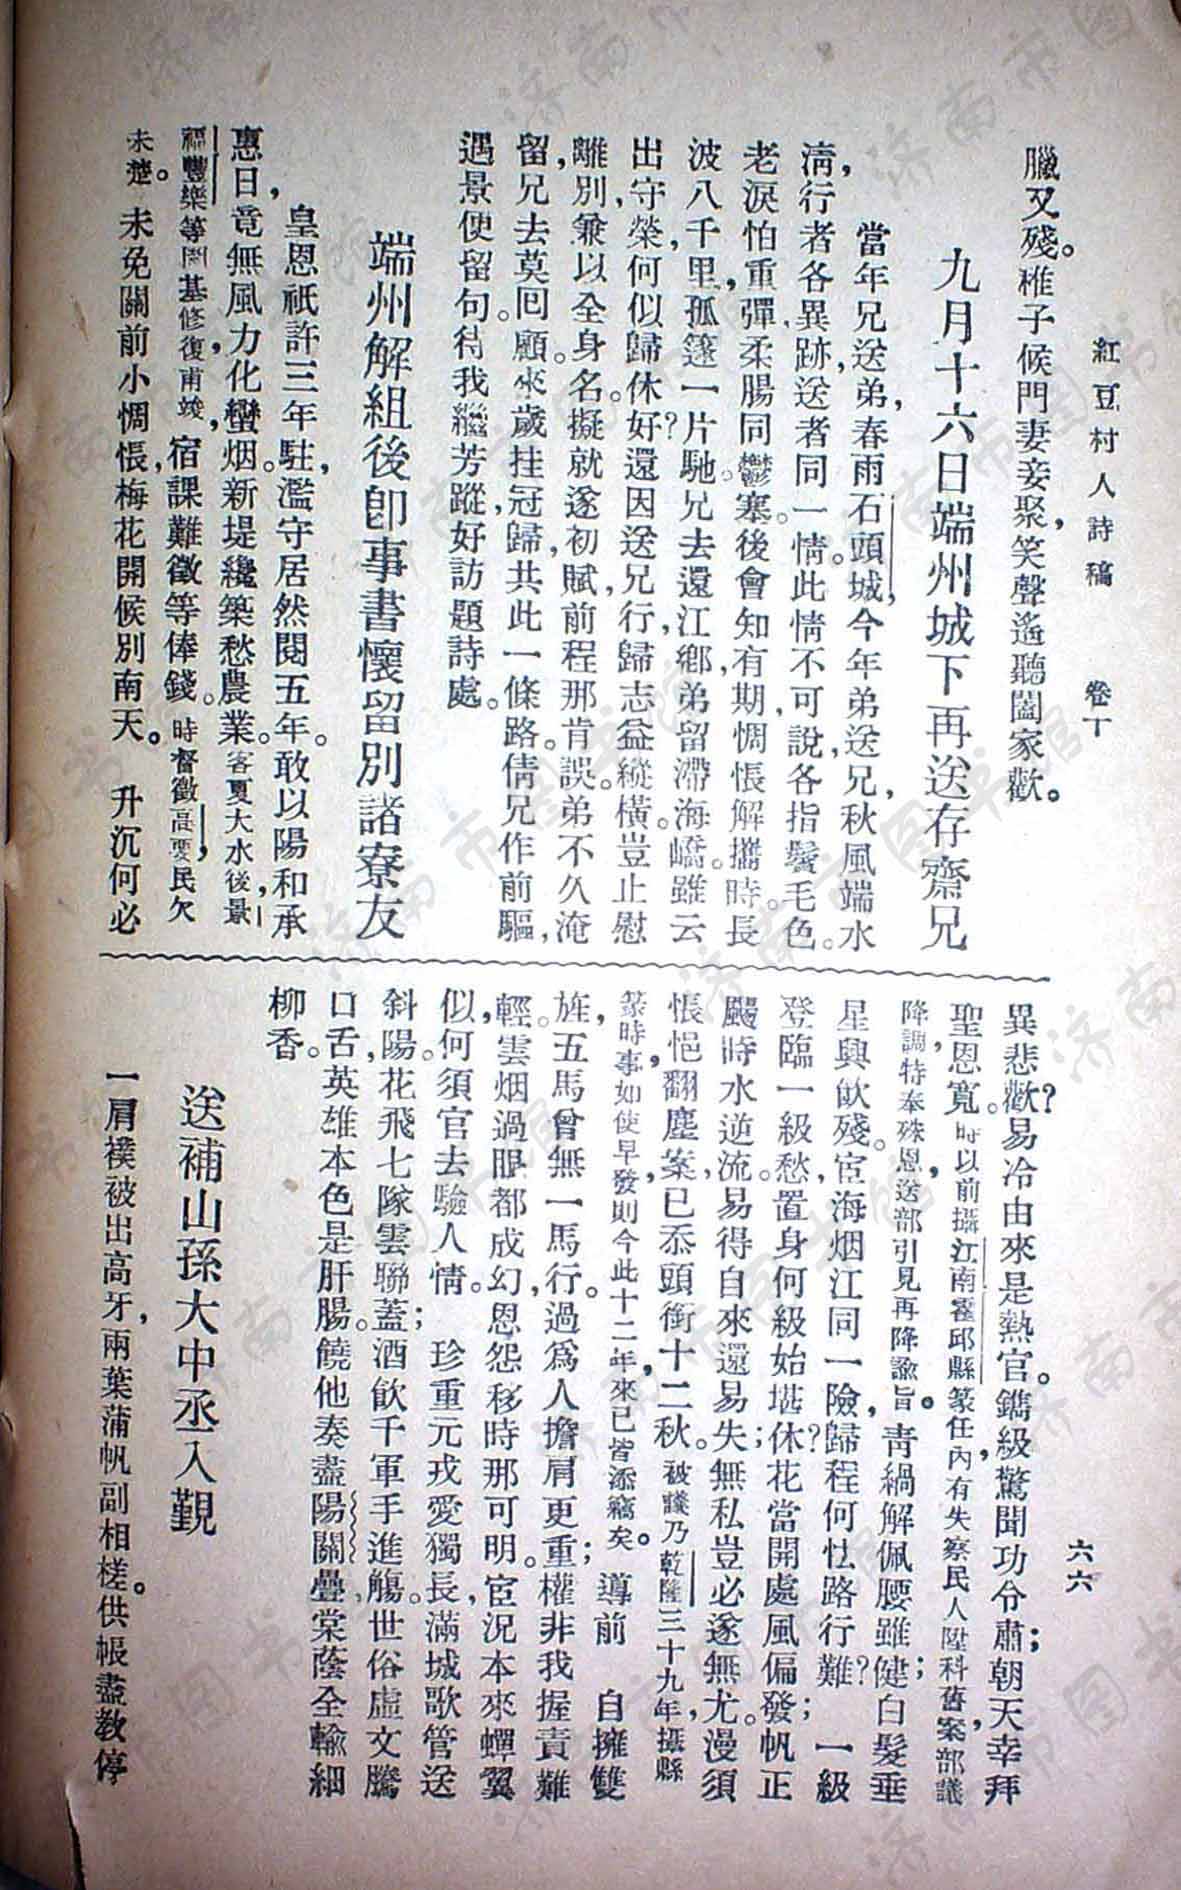 紅豆村人詩稿　卷下
六六
臘又殘。稚子候門妻妾聚，笑聲遙聽闔家歡。
九月十六日端州城下再送存齋兄
當年兄送弟，春雨石頭城，今年弟送兄，秋風端水
淸，行者各異跡，送者同一情。此情不可說，各指鬢毛色。
老淚怕重彈，柔腸同鬱塞。後會知有期，惆悵解攜時。長
波八千里，孤篷一片馳？兄去還江鄉，弟留滯海嶠。雖云
出守榮，何似歸休好？還因送兄行，歸志益縱橫。豈止慰
離別，兼以全身名。擬就遂初賦，前程那肯誤。弟不久淹
留，兄去莫回顧。來歲挂冠歸，共此一條路。倩兄作前驅，
遇景便留句。待我繼芳蹤，好訪題詩處。
端州解組後卽事書懷留別諸寮友
皇恩祇許三年駐，濫守居然閱五年。敢以陽和承
惠日，竟無風力化蠻烟。新堤纔築愁農業。客夏大水後，景
福豐樂等圍基修復甫竣，宿課難徵等俸錢。時督徵高要民欠，
未楚。未免關前小惆悵，梅花開候別南天。　升沉何必
異悲歡？易冷由來是熱官。鐫級驚聞功令肅；朝天幸拜
聖恩寬。時以前攝江南霍邱縣篆任內，有失察民人陞科舊案，部議
降調，特奉硃恩，送部引見再降諭旨。靑綬解佩腰雖健；白髮垂
星興歇殘。宦海烟江同一險，歸程何怯路行難？　一級
登臨一級愁，置身何級始堪休？花當開處風偏發；帆正
颺時水逆流。易得自來還易失，無私豈必遂無尤。漫須
悵悒翻塵案，已忝頭銜十二秋。被議乃乾隆三十九年，攝縣
篆時事，如使早發則今此十二年來已皆添竊矣。　導前　自擁雙
旌，五馬曾無一馬行。過爲人擔肩更重；權非我握責難
輕。雲烟過眼都成幻，恩怨移時那可明。宦況本來蟬翼
似，何須官去驗人情。　珍重元戎愛獨長，滿城歌管送
斜陽，花飛七隊雲聯蓋；酒飮千軍手進觴。世俗虛文騰
口舌，英雄本色是肝腸。饒他奏盡陽關疊，棠蔭全輸細
柳香。
送補山孫大中丞入覲
一肩襆被出高牙，兩葉蒲帆副相槎。供帳盡敎停